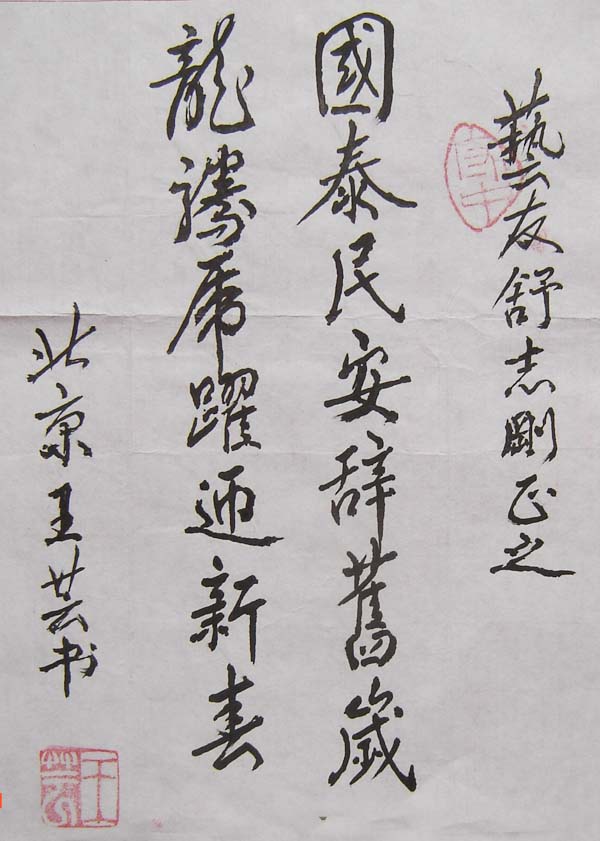 藝友舒志剛正之
國泰民安辞舊歲
龍騰虎躍迎新春
北京王芸书
王芸